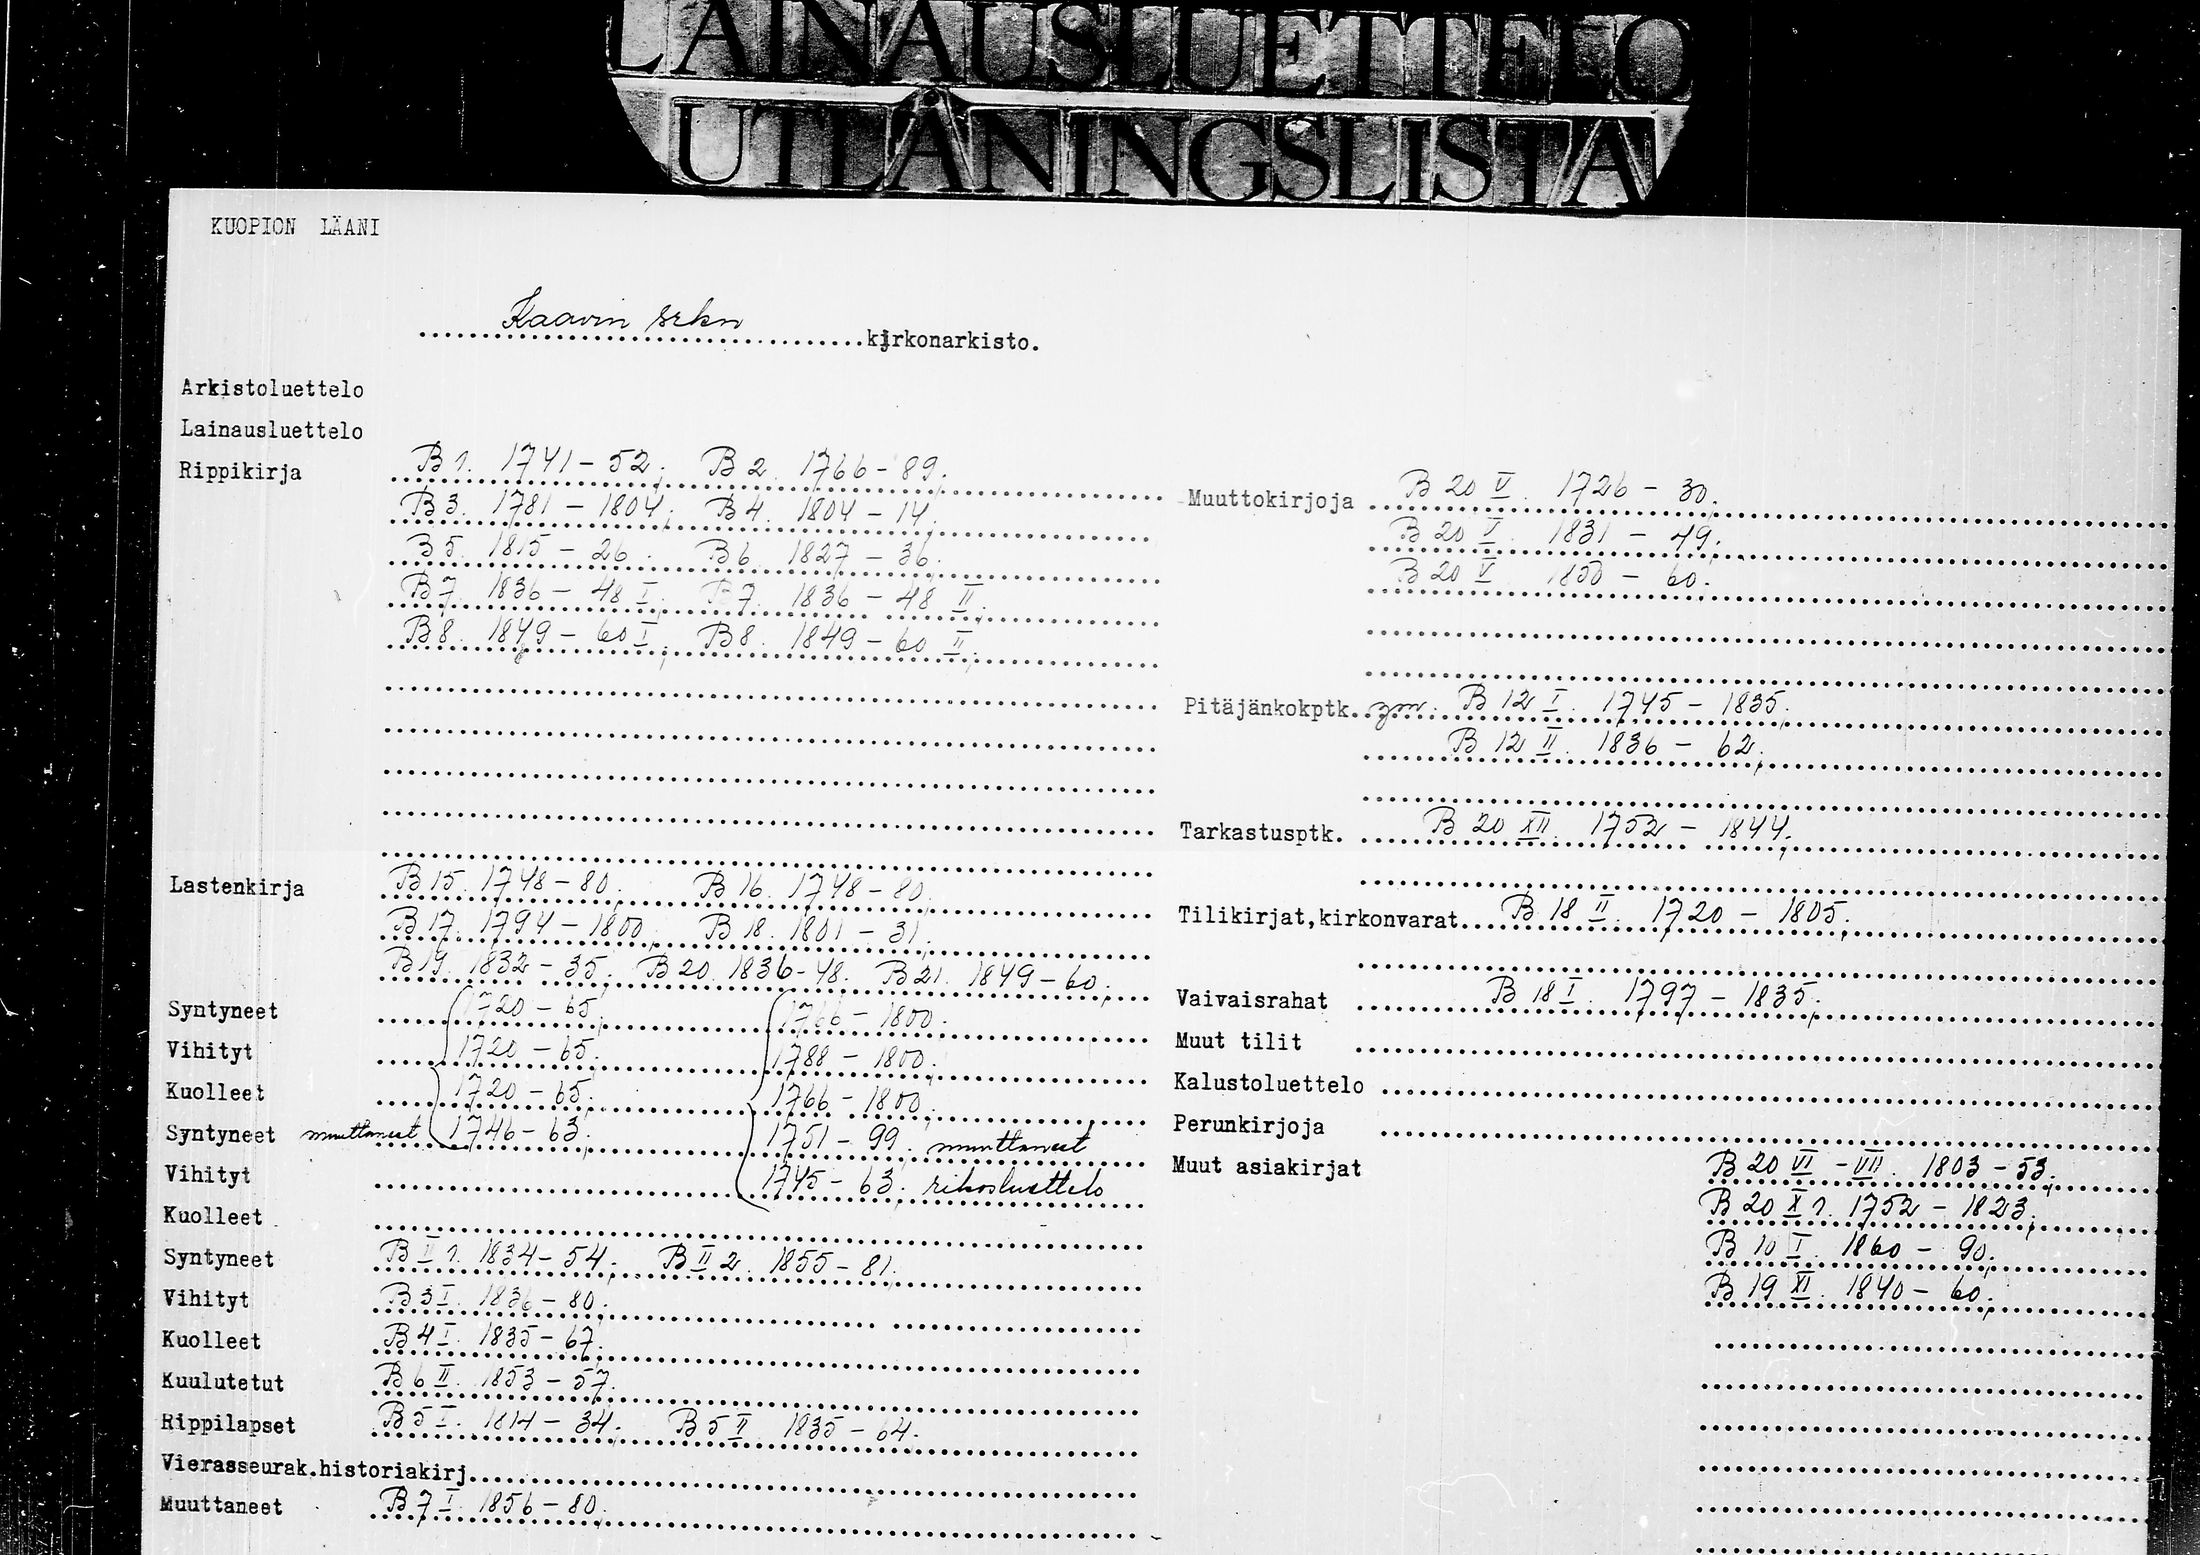 LAINAUSLUETTELO
UTLÅNINGSLISTA
KUOPION LÄÄNI
Kaavin srkn kirkonarkisto.
Arkistoluettelo
Lainausluettelo
Rippikirja B 1. 1741-52; B 2. 1766-89.
B 3. 1781-1804; B 4. 1804-14;
B 5. 1815-26. B 6. 1827-36.
B 7. 1836-48 I; B 7. 1836-48 II;
B 8. 1849-60 I; B 8. 1849-60 II;
Lastenkirja B 15. 1748-80; B 16. 1748-80.
B 17. 1794-1800; B 18. 1801-31;
B 19. 1832-35; B 20. 1836-48. B 21. 1849-60;
Syntyneet 1720-65; 1766-1800.
Vihityt 1720-65. 1788-1800;
Kuolleet 1720-65. 1766-1800;
Syntyneet muuttaneet 1746-63. 1751-99. muuttaneet
Vihityt 1745-63. rikosluettelo
Kuolleet
Syntyneet B II 1. 1834-54; B II 2. 1855-81.
Vihityt B 3 I. 1836-80.
Kuolleet B 4 I. 1835-67.
Kuulutetut B 6 II. 1853-57.
Rippilapset B 5 I. 1814-34. B 5 II. 1835-64.
Vierasseurak.historiakirj.
Muuttaneet B 7 I. 1856-80.
Muuttokirjoja B 20 V. 1726-30.
B 20 V. 1831-49.
B 20 V. 1850-60.
Pitäjänkokptk. ym. B 12 I. 1745-1835.
B 12 II. 1836-62.
Tarkastusptk. B 20 XII. 1752-1844.
Tilikirjat,kirkonvarat. B 18 II. 1720-1805.
Vaivaisrahat B 18 I. 1797-1835.
Muut tilit
Kalustoluettelo
Perunkirjoja
Muut asiakirjat B 20 VI-VII. 1803-53;
B 20 X 1. 1752-1823;
B 10 I. 1860-90.
B 19 XI. 1840-60.